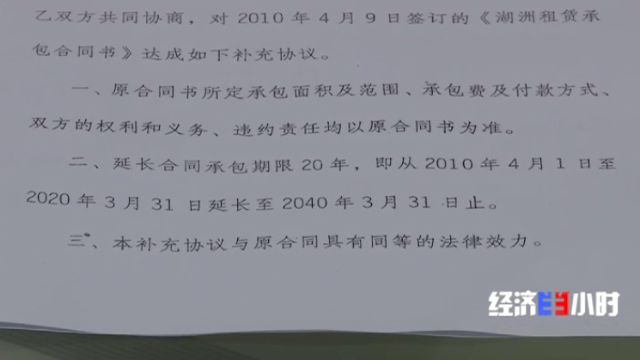 乙双方共同协商，对 2010 年 4 月 9 日签订的《湖洲租赁承
包合同书》达成如下补充协议。
一、原合同书所定承包面积及范围、承包费及付款方式、
双方的权利和义务、违约责任均以原合同书为准。
二、延长合同承包期限 20 年，即从 2010 年 4 月 1 日至
2020 年 3 月 31 日延长至 2040 年 3 月 31 日止。
三、本补充协议与原合同具有同等的法律效力。
经济半小时